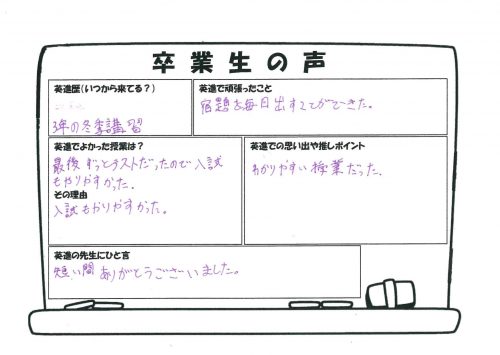 卒業生の声
英進歴(いつから来てる?)
3年の冬季講習
英進で頑張ったこと
宿題を毎日出すことができた。
英進でよかった授業は?
最後ずっとテストだったので入試
もやりやすかった。
その理由
入試もやりやすかった。
英進での思い出や推しポイント
わかりやすい授業だった。
英進の先生にひと言
短い間ありがとうございました。